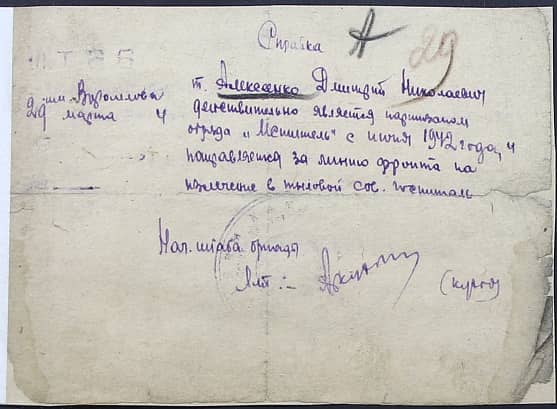 Справка
А 29
ШТАБ
им. Ворошилова
29 марта
т. Алексеенко Дмитрий Николаевич
действительно является партизаном
отряда „Мститель" с июня 1942 года, и
направляется за линию фронта на
излечение в тыловой сов. госпиталь
Нач. штаба бригады